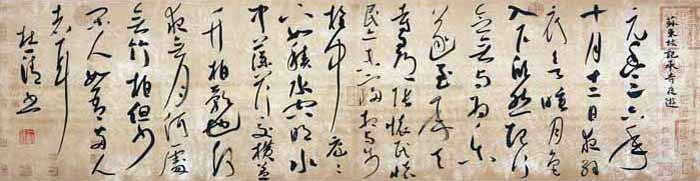 蘇東坡記承天寺夜遊
元豐六年
十月十二日夜解
衣欲睡月色
入戶欣然起行
念無與為樂
遂至承天
寺尋張懷民懷
民亦未寢相與步
於中庭
下如積水空明水
中藻荇交橫蓋
竹柏影也何
夜無月何處
無竹柏但少
閑人如吾兩人
者耳